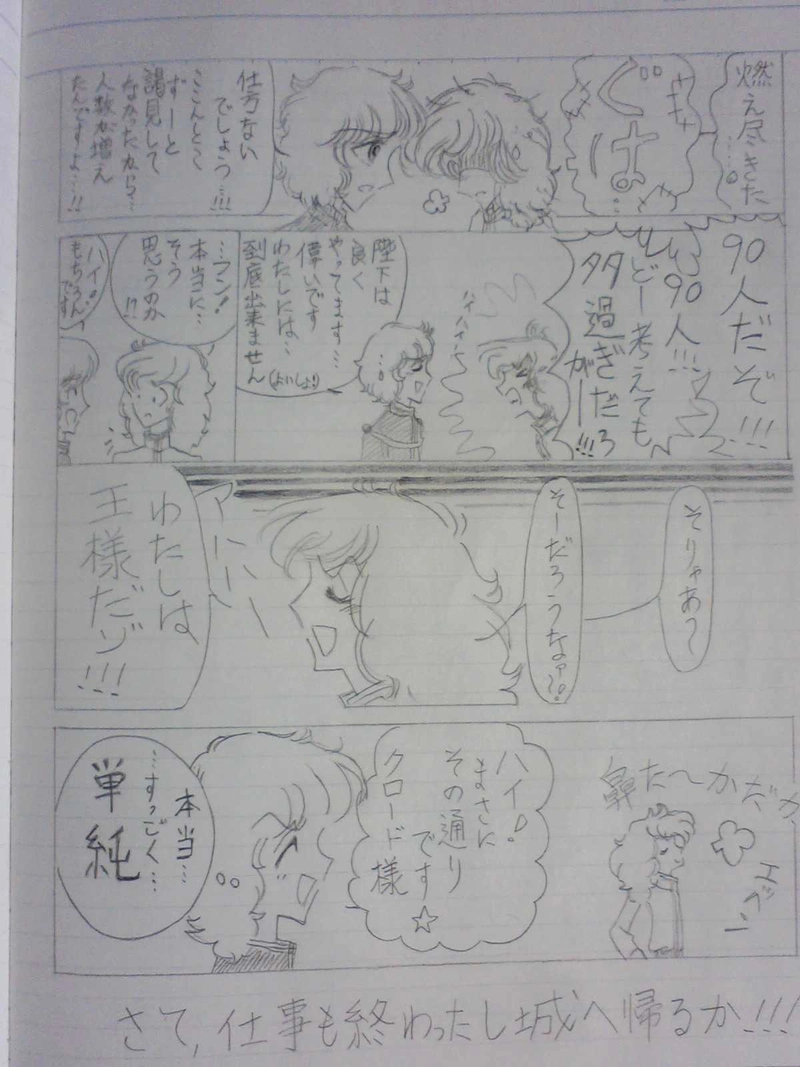 燃え尽きた……。
ぐはっ…
仕方ない
でしょう…!!!
ここんとこ
ずーと
謁見して
なかったから…
人数が増え
たんですよ…!!
90人だぞ!!!
90人!!!
どー考えても
多過ぎだろ
がー!!!
ハイハイ…
陛下は
良く
やってます…
偉いです
わたしには…
到底出来ません
(よいしょ!)
…フン!
本当に…
そう
思うのか
!?
ハイ!
もちろん
です
そりゃあ〜
そーだろうなァ〜?
アハハハー
わたしは
王様だゾ!!!
鼻たーかだか
エヘン
ハイ!
まさに
その通り
です☆
クロード様
本当…
…すっごく…
単純
さて,仕事も終わったし城へ帰るか!!!